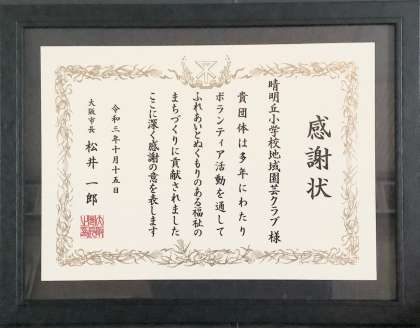 感謝状
晴明丘小学校地域園芸クラブ 様
貴団体は多年にわたり
ボランティア活動を通して
ふれあいとぬくもりのある福祉の
まちづくりに貢献されました
ここに深く感謝の意を表します
令和三年十月十五日
大阪市長 松井一郎